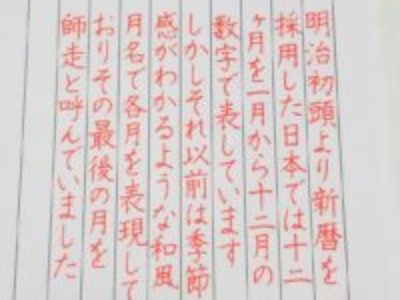 明治初頭より新暦を
採用した日本では十二
ヶ月を一月から十二月の
数字で表しています
しかしそれ以前は季節
感がわかるような和風
月名で各月を表現して
おりその最後の月を
師走と呼んでいました